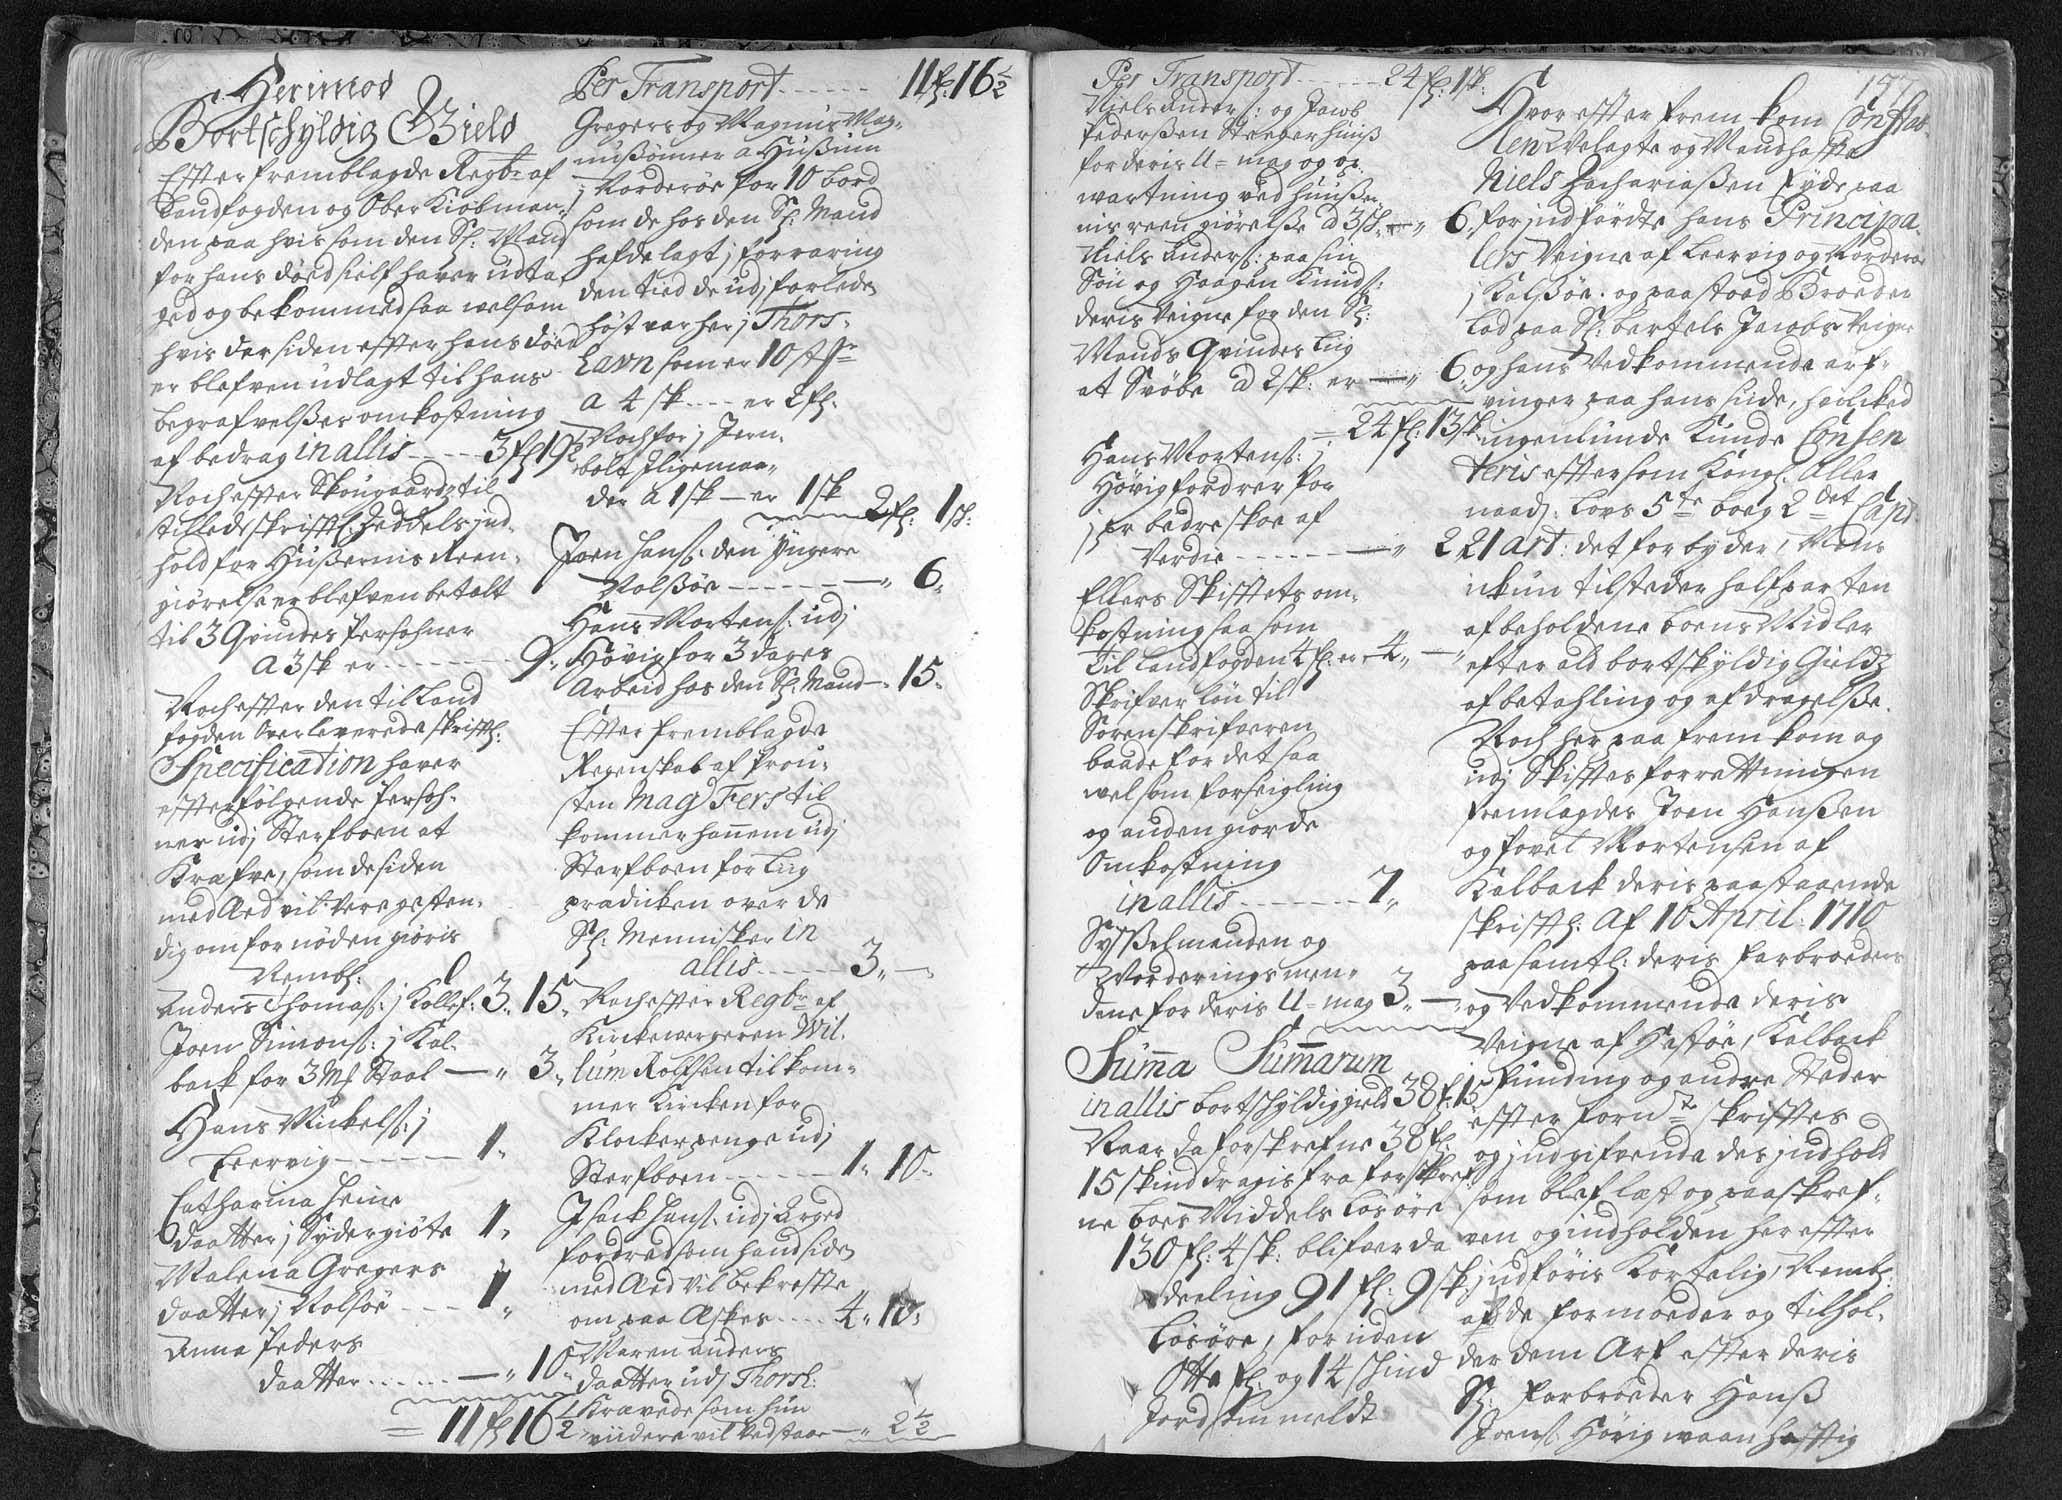 Herimod
Bortschyldig Gield
Effter fremblagde Regbr af
Landfogden og Ober Kiøbman-
den paa hvis som den Sl: Mand
for hans død sielf haver udta
ged og bekommed saa vel som
hvis der siden effter hans død
er blefven udlagt til hans
begrafvelßes omkostning
af bedrag in allis - - - - 3 fl 19½
Noch effter Skougaardz til
stillede skrifftl. Zeddels ind-
hold for Hußernis Reen-
giørelse er blefven betalt
til 3 Qvindes Persohner
a 3 sk er - - - - - - - 9„
Noch effter den til Land
fogden Overleverede skrifftl:
Specification haver
effterfølgende Persoh-
ner udj Sterfboen at
Kræfve, som de siden
med Aed vil være gesten-
dig om fornøden giøris
Nembl:
Anders Thomas: j Kollef: 3„ 15„
Joen Simons: j Kal-
back for 3 Mk Staal — „ 3„
Hans Mickels: j
Leervig - - - - - - 1„
Catharina Heine
daatter j Sydergiøte 1„
Malena Gregers
daatter j Nolsøe - - - 1„
Anna Peders
daatter - - - - — „ 10„
= 11 fl 16½
Per Transport - - - - - - 11 fl: 16½
Gregers og Magnus Mag-
nußønner a Hußum
j Norderøe for 10 bord
som de hos den Sl: Mand
hafde lagt j forvaring
den tied de udj forleden
høst var her j Thors-
havn som er 10 st
a 4 sk - - - er 2 fl:
Noch for j Jern-
bolt Iligemaa-
der a 1 sk — er 1 sk 2 fl: 1 sk:
Joen Hans: den yngere
Nolßøe - - - - - - — „ 6„
Hans Mortens: udj
Høvig for 3 dages
Arbeid hos den Sl: Mand — „ 15„
Effter fremblagde
Regenskab af Prou-
sten Mag Fers til
kommer hannem udj
Sterfboen for Liig
prædicken over de
Sl: Mennisker in
allis - - - - - 3„ —„
Noch effter Regbr af
Kirckevergeren Wil-
lum Rolfsen til kom-
mer Kircken for
Klocker penge udj
Sterfboen - - - - - - 1„ 10„
Isack Hans: udj Arged
fordred som hand siden
med Aed vil bekreffte
om paa Askes - - - - 4„ 10„
Maren Anders
daatter udj Thorsh:
Krævede som hun
viidere vil vedstaae — „ 2½
Per Transport - - - - 24 fl: 1 sk: 177
Niels Anders: og Jacob
Pederßen Steegerhuuß
for deris U=mag og op-
wartning ved huußer-
nis reengiørelße ad 3 sk: — „ 6„
Niels Anders: paa sin
Søn og Haagen Knuds:
deris Veigne for den Sl:
Mands Qvindes Liig
at Svøbe ad 2 sk: er — „ 6„
= 24 fl: 13 sk
Hans Mortens: j
Høvig fordrer for
j par bedre skoe af
Verdie - - - - - - — „ 2
Ellers Skifftets om-
kostning saa som
til Landfogden 4 fl: er 4„ —„
Skrifver løn til
Sorenskrifveren
baade for det saa
vel som forseigling
og anden giorde
Omkostning
in allis - - - - - - - 7„
Syßelmanden og
Vorderingsmen-
dene for deris U=mag 3„ —„
Suma Sumarum
in allis bortschyldig gield 38 fl: 15
Naar da forskrefne 38 fl:
15 skind dragis fra forskref
ne boes Middels Løsøre
130 fl: 4 sk: blifver da
deeling 91 fl: 9 sk:
Løsøre, foruden
Otte fl: og 14 skind
Jord som meldt
Hvor effter frem kom Constab-
len Velagte og Mandhaffte
Niels Zachariaßen Eyde paa
forindførdte hans Principa-
lers Veigne af Leervig og Norderøe
j Kalßøe og paastoed Broeder
Lod paa Sl: Bertels Jacobs Veigne
og hans Vedkommende arf-
vinger paa hans siide, hvilcked
ingenlunde kunde Consen
teris effter som Kongl. Aller
naad: Lovs 5te bog 2det Capt:
21 art: det forbyder, Mens
ickun tilsteder halfparten
af beholdene boens Midler
efter ald bortskyldig Gields
af betahling og af dragelße.
Noch her paa frem kom og
udj Skifftesforrettningen
fremlagdes Joen Hanßen
og Povel Mortensen af
Kalback deris paastaaende
skrifftl: Af 10 April: 1710
paa samtl: deris farbroeders
og Vedkommende deris
Veigne af Hestøe, Kalback
Funding og andre Steder
effter forne skrifftes
og indgifvende des indhold
som blef læst og paaskref-
ven og indholden her effter
indføris Kortelig, Nembl:
at de formoeder og tilhol-
der dem Arf effter deris
Sl: farbroeder Hanß
Joens: Høvig waanhafftig